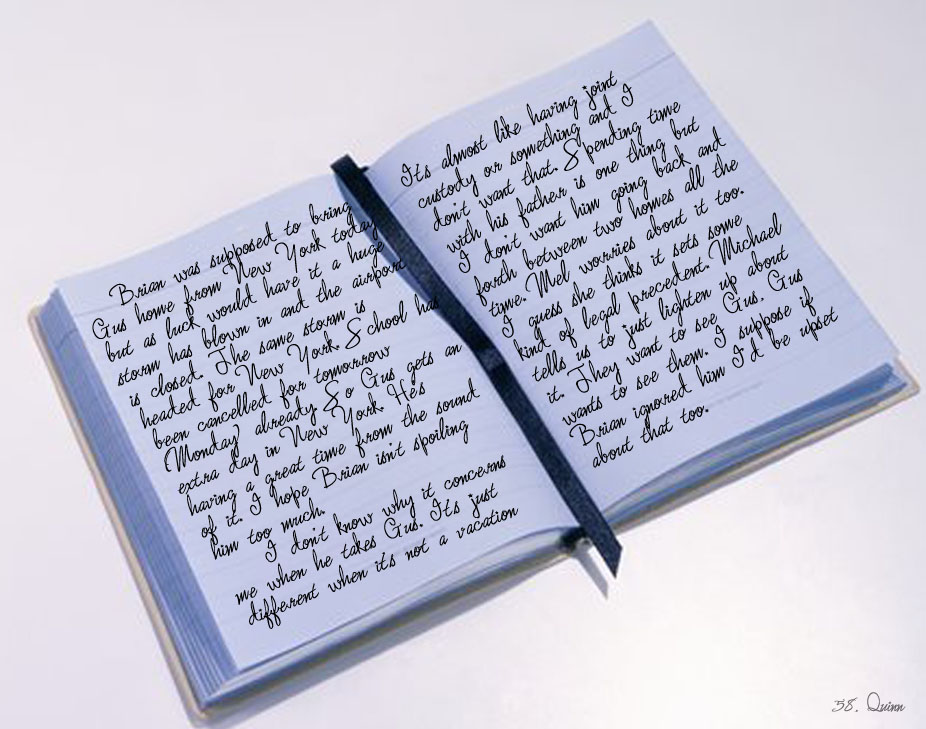 Brian was supposed to bring
Gus home from New York today
but as luck would have it a huge
storm has blown in and the airport
is closed. The same storm is
headed for New York. School has
been cancelled for tomorrow
(Monday) already. So Gus gets an
extra day in New York. He's
having a great time from the sound
of it. I hope Brian isn't spoiling
him too much.
I don't know why it concerns
me when he takes Gus. It's just
different when it's not a vacation
It's almost like having joint
custody or something and I
don't want that. Spending time
with his father is one thing but
I don't want him going back and
forth between two homes all the
time. Mel worries about it too.
I guess she thinks it sets some
kind of legal precedent. Michael
tells us to just lighten up about
it. They want to see Gus. Gus
wants to see them. I suppose if
Brian ignored him I'd be upset
about that too.
58. Quinn